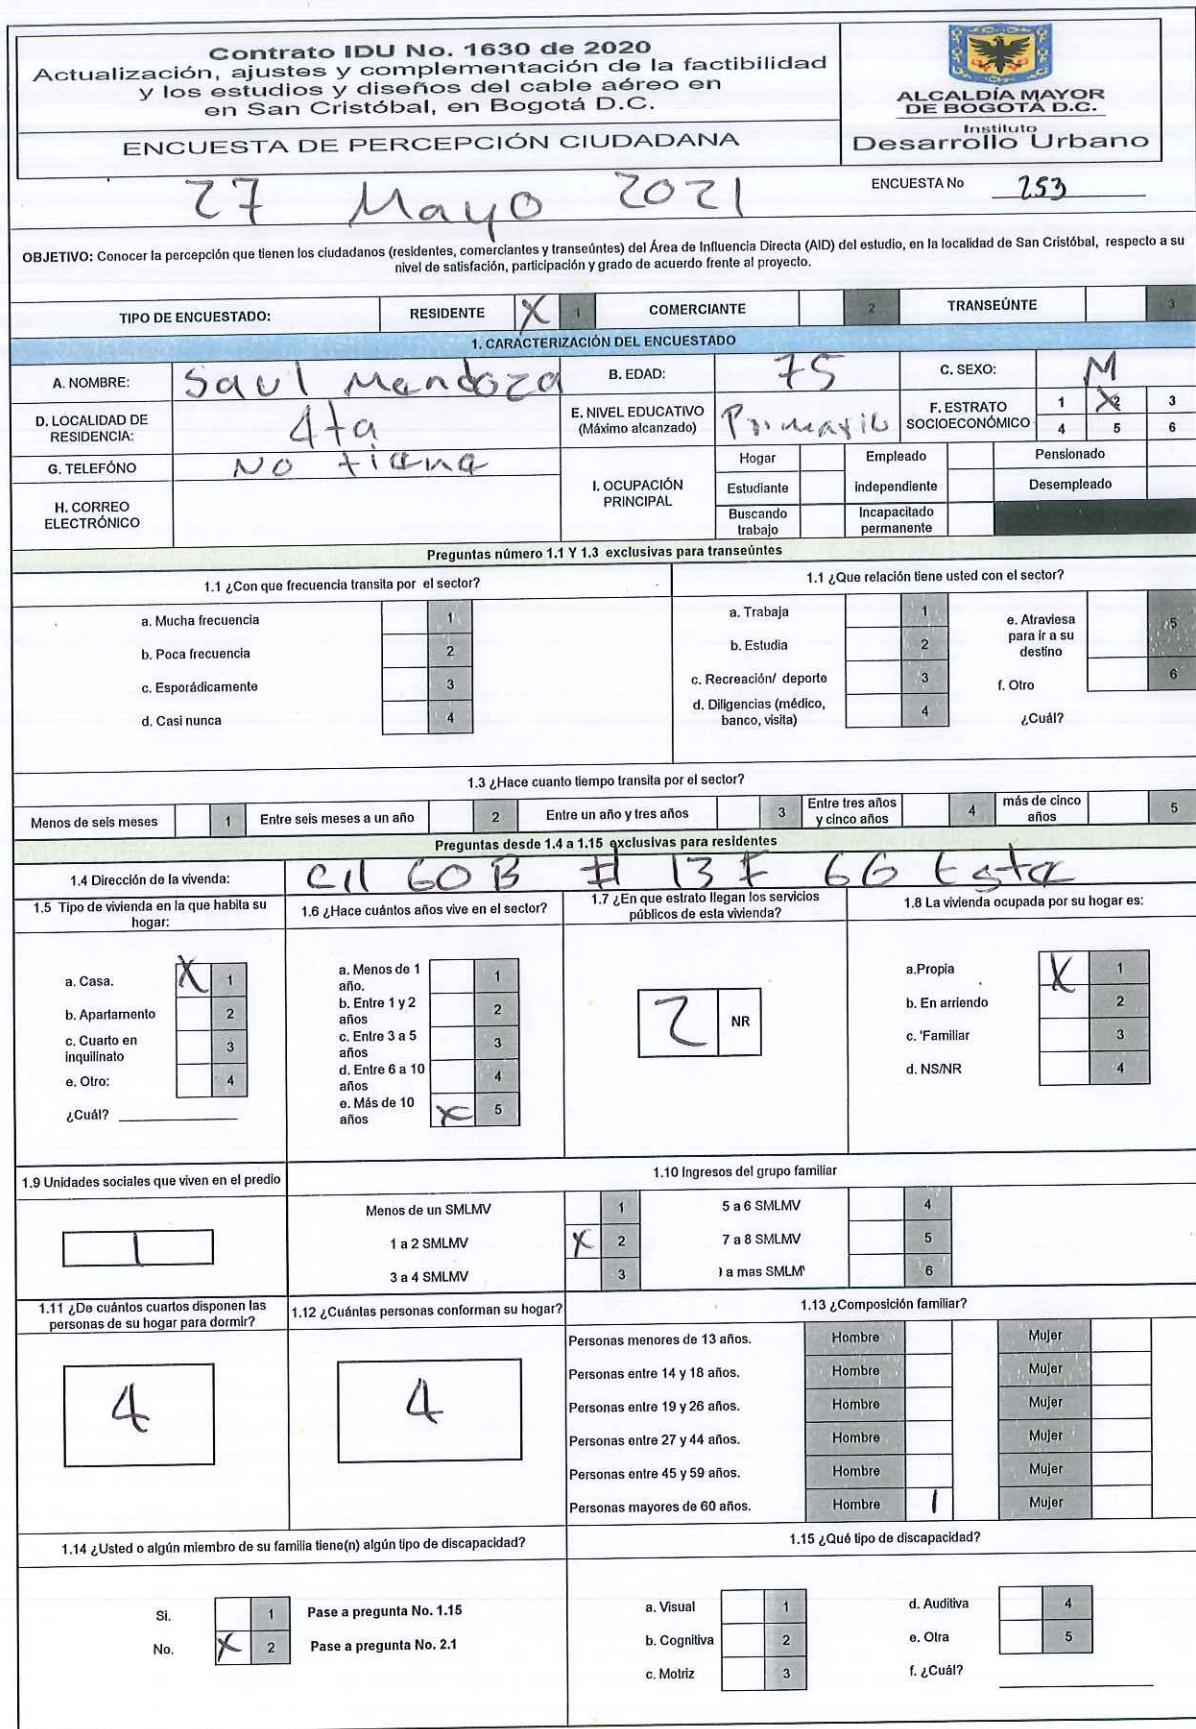 Contrato IDU No. 1630 de 2020
Actualización, ajustes y complementación de la factibilidad
y los estudios y diseños del cable aéreo en
en San Cristóbal, en Bogotá D.C.
ENCUESTA DE PERCEPCIÓN CIUDADANA
ALCALDÍA MAYOR
DE BOGOTÁ D.C.
Instituto
Desarrollo Urbano
27 Mayo 2021
ENCUESTA No 253
OBJETIVO: Conocer la percepción que tienen los ciudadanos (residentes, comerciantes y transeúntes) del Área de Influencia Directa (AID) del estudio, en la localidad de San Cristóbal, respecto a su
nivel de satisfacción, participación y grado de acuerdo frente al proyecto.
TIPO DE ENCUESTADO: RESIDENTE X 1 COMERCIANTE 2 TRANSEÚNTE 3
1. CARACTERIZACIÓN DEL ENCUESTADO
A. NOMBRE: Saul Mendoza B. EDAD: 75 C. SEXO: M
D. LOCALIDAD DE RESIDENCIA: 4ta E. NIVEL EDUCATIVO (Máximo alcanzado) F. ESTRATO SOCIOECONÓMICO 1 X2 3
4 5 6
G. TELEFÓNO No tiene
H. CORREO ELECTRÓNICO
I. OCUPACIÓN PRINCIPAL
Hogar Empleado Pensionado
Estudiante independiente Desempleado
Buscando trabajo Incapacitado permanente
Preguntas número 1.1 Y 1.3 exclusivas para transeúntes
1.1 ¿Con que frecuencia transita por el sector?
a. Mucha frecuencia 1
b. Poca frecuencia 2
c. Esporádicamente 3
d. Casi nunca 4
1.1 ¿Que relación tiene usted con el sector?
a. Trabaja 1
b. Estudia 2
c. Recreación/ deporte 3
d. Diligencias (médico, banco, visita) 4
e. Atraviesa para ir a su destino 5
f. Otro 6
¿Cuál?
1.3 ¿Hace cuanto tiempo transita por el sector?
Menos de seis meses 1 Entre seis meses a un año 2 Entre un año y tres años 3 Entre tres años y cinco años 4 más de cinco años 5
Preguntas desde 1.4 a 1.15 exclusivas para residentes
1.4 Dirección de la vivenda: Cll 60B # 13 66 Este
1.5 Tipo de vivienda en la que habita su hogar:
a. Casa. X 1
b. Apartamento 2
c. Cuarto en inquilinato 3
e. Otro: 4
¿Cuál?
1.6 ¿Hace cuántos años vive en el sector?
a. Menos de 1 año. 1
b. Entre 1 y 2 años 2
c. Entre 3 a 5 años 3
d. Entre 6 a 10 años 4
e. Más de 10 años X 5
1.7 ¿En que estrato llegan los servicios públicos de esta vivienda?
2 NR
1.8 La vivienda ocupada por su hogar es:
a.Propia X 1
b. En arriendo 2
c. 'Familiar 3
d. NS/NR 4
1.9 Unidades sociales que viven en el predio
1
1.10 Ingresos del grupo familiar
Menos de un SMLMV 1 5 a 6 SMLMV 4
1 a 2 SMLMV X 2 7 a 8 SMLMV 5
3 a 4 SMLMV 3 ) a mas SMLM' 6
1.11 ¿De cuántos cuartos disponen las personas de su hogar para dormir?
4
1.12 ¿Cuántas personas conforman su hogar?
4
1.13 ¿Composición familiar?
Personas menores de 13 años. Hombre Mujer
Personas entre 14 y 18 años. Hombre Mujer
Personas entre 19 y 26 años. Hombre Mujer
Personas entre 27 y 44 años. Hombre Mujer
Personas entre 45 y 59 años. Hombre Mujer
Personas mayores de 60 años. Hombre 1 Mujer
1.14 ¿Usted o algún miembro de su familia tiene(n) algún tipo de discapacidad?
Si. 1 Pase a pregunta No. 1.15
No. X 2 Pase a pregunta No. 2.1
1.15 ¿Qué tipo de discapacidad?
a. Visual 1 d. Auditiva 4
b. Cognitiva 2 e. Otra 5
c. Motriz 3 f. ¿Cuál?